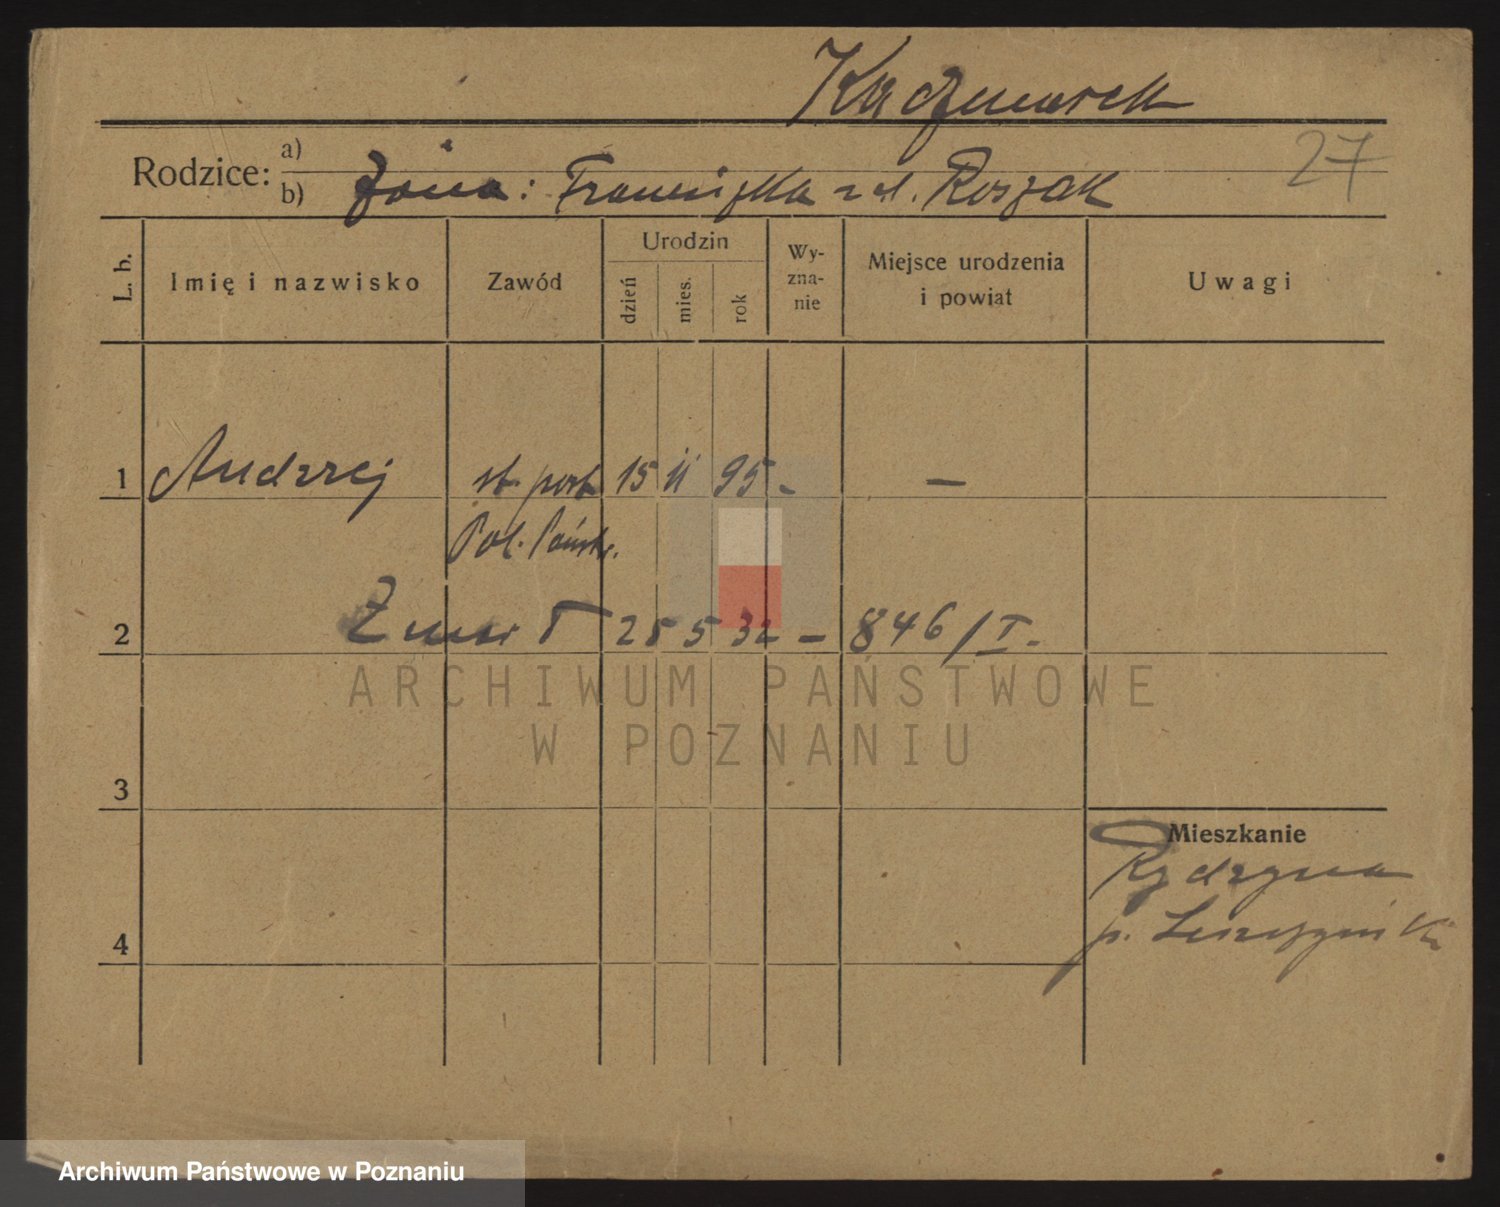 Kaczmarek
27
Rodzice: a)
b) żona: Franciszka z d. Roszak
L. b.
Imię i nazwisko
Zawód
Urodzin
dzień
mies.
rok
Wy-
zna-
nie
Miejsce urodzenia
i powiat
Uwagi
1 Andrzej st. post. 15 11 95 - —
Pol. Państw.
2 Zmarł 25 5 32 — 846/I -
3
4
Mieszkanie
Rydzyna
p. Leszczyński
ARCHIWUM PAŃSTWOWE
W POZNANIU
Archiwum Państwowe w Poznaniu